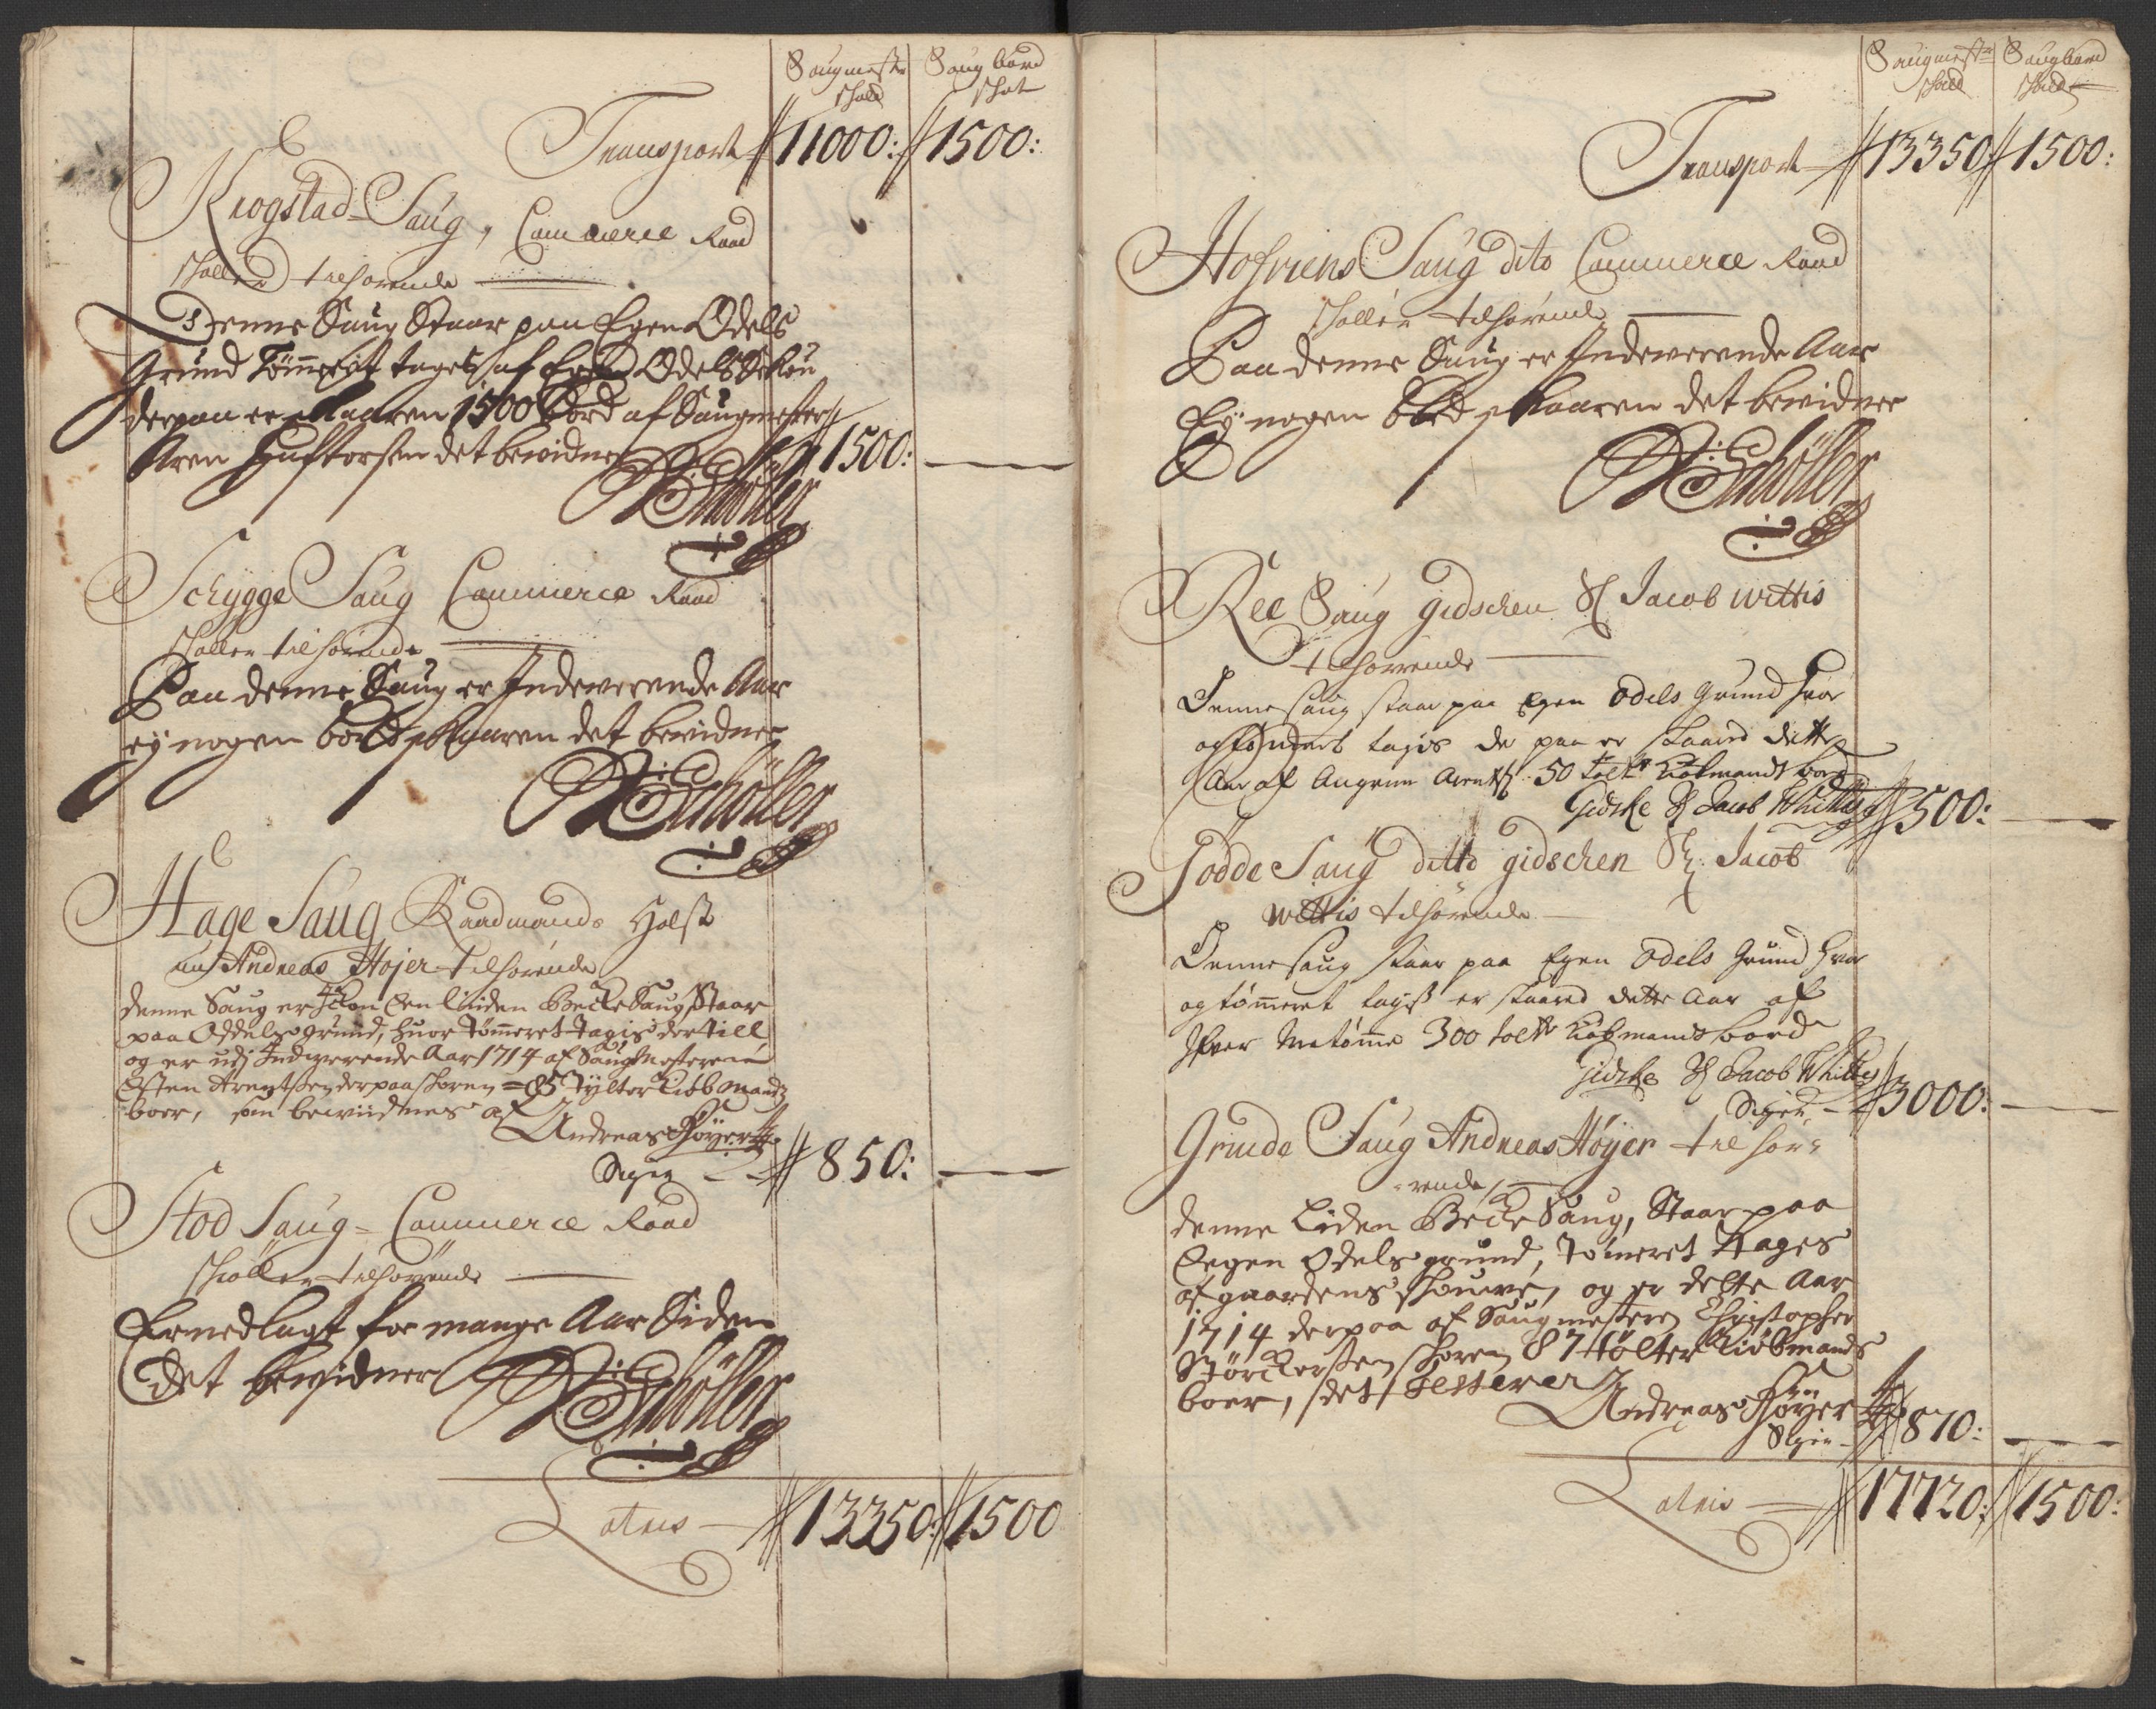 Saugmester Saug bord
skatt skat
Transport 11000: 1500:
Krogstad Saug, Commerce Raad
Skøller tilhørende
Denne Saug Staar paa Egen Odels
Grund Tømmerit tages af Egen Odels Skou
derpaa er skaaren 1500 bord af Saugmester
Aren det bevidner 1500:
Schøller
Schygge Saug Commerce Raad
Skøller tilhørende
Paa denne Saug er Indeverende Aar
ey nogen bord skaaren det bevidner
Schøller
Hage Saug Raadmand Holst
Andreas Højer tilhørende
denne Saug er Ickon Een liiden Becke Saug, Staar
paa Oddels grund, huor Tømmeret Tagis der till
og er udj Indwerende Aar 1714 af Saug Mesteren
Esten Arentsen der paa skoren = 85 Tylter Kiøbmands
boer, som bewiidnes af
Andreas Høyer
850:
Stod Saug = Commerce Raad
Skøller tilhørende
Er nedlagt for mange Aar Siden
Det bevidner Schøller
Latus 13350: 1500
Saugmester Saugbord
skatt skatt
Transport 13350 1500:
Hofriens Saug dito Commerce Raad
Skøller tilhørende
Paa denne Saug er Indeverende Aar
Ey nogen bord skaaren det bevidner
Schøller
Ree Saug gidschen Sl Jacob wittis
tilhørende
Denne saug staar paa Egen Odels Grund hvor
og tømmeret tages der paa er skaaret dette
Aar af Arents: 50 tolter kiøbmands bord
Gidske Sl Jacob Whittes 500:
Fodde Saug ditto gidschen Sl: Jacob
wittis tilhørende
Denne saug staar paa Egen Odels Grund hvor
og tømmeret tagis er skaared dette Aar af
300 tolter kiøbmands bord
Gidske Sl Jacob Whittes
3000:
Grinde Saug Andreas Høyer tilhør=
=rende
denne Liden Becke Saug, Staar paa
Eegen Odels grund, Tømeret Tages
af gaardens skouve, og er dette Aar
1714 derpaa af Saugmesteren Christopher
Størckersen skoren 87 tølter Kiøbmands
boer, det testerer
Andreas Høyer
870:
Latus 17720: 1500: